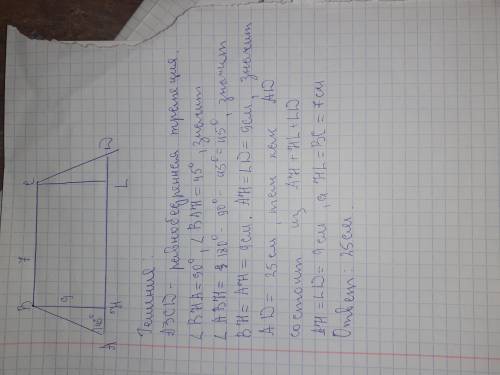 B 7 C
9
45°
A H L D
Решение.
ABCD - равнобедренная трапеция.
∠BHA = 90°, ∠BAH = 45°, значит
∠ABH = 180° - 90° - 45° = 45°, значит
BH = AH = 9см. AH = LD = 9см, значит
AD = 25 см, так как AD
состоит из AH + HL + LD
AH = LD = 9 см, а HL = BC = 7 см
Ответ: 25 см.